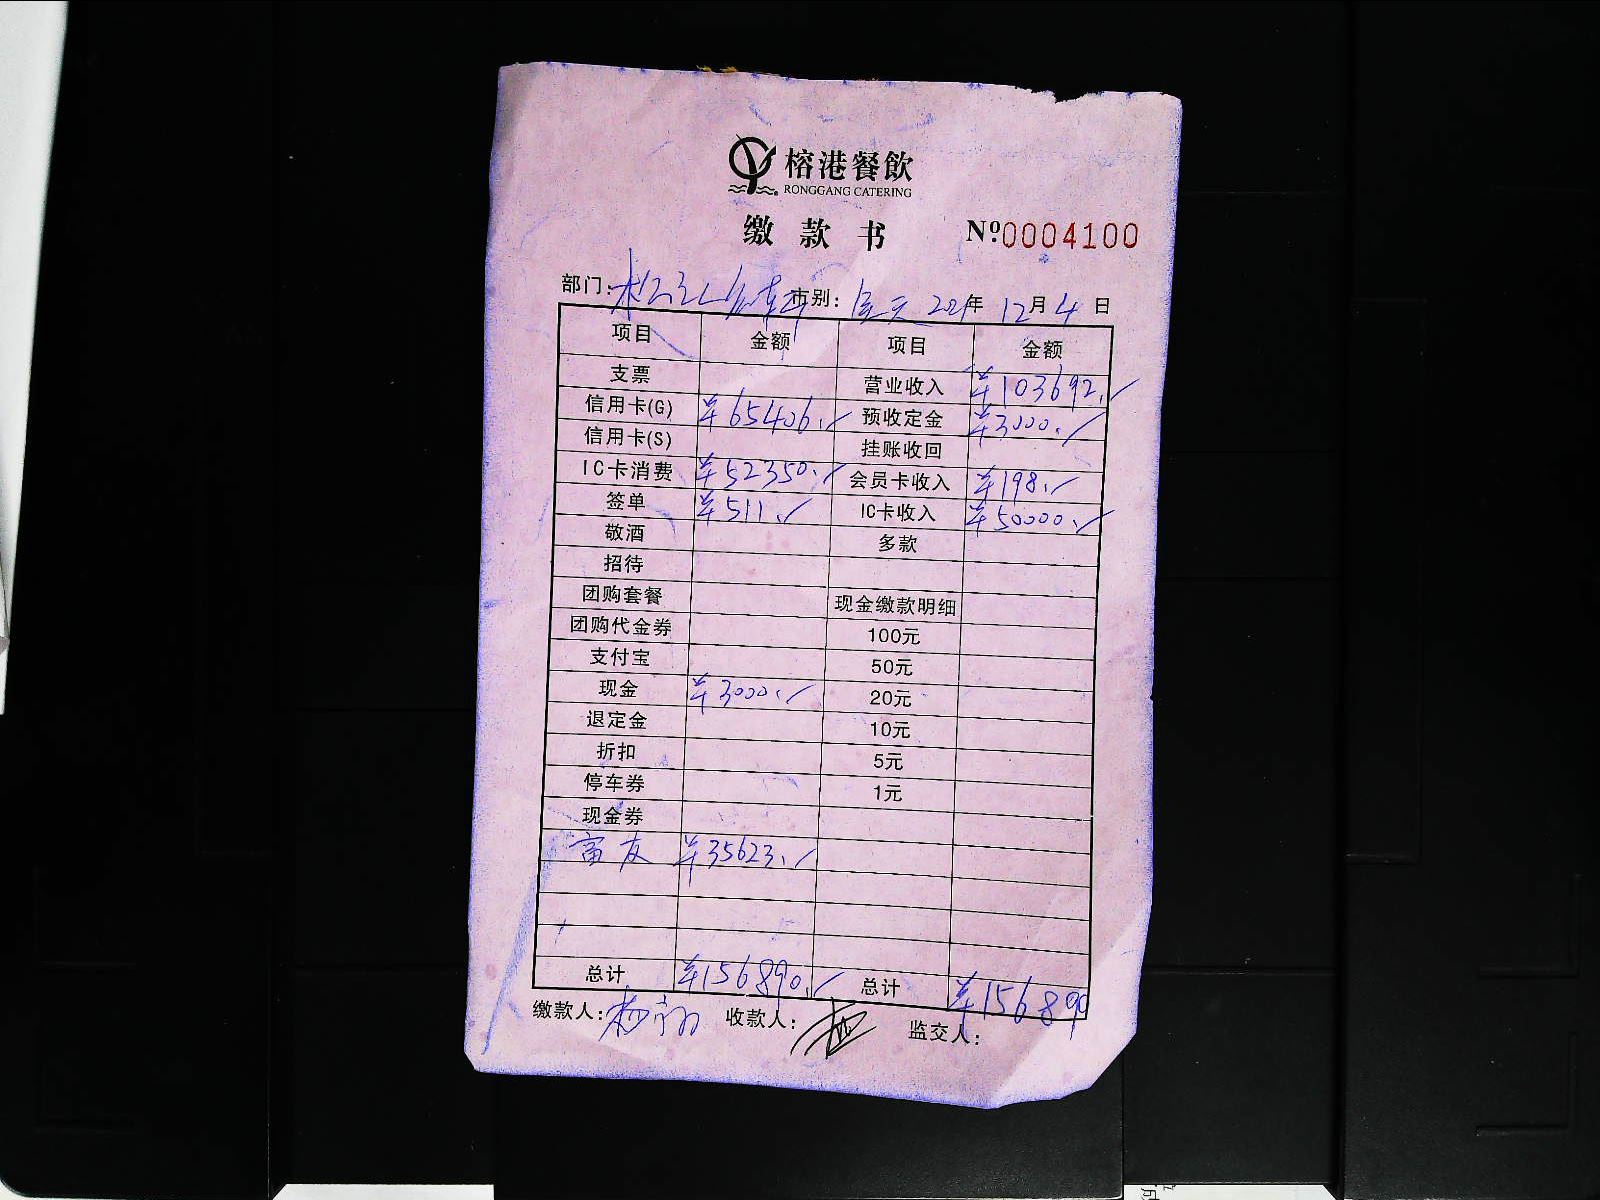 榕港餐飲
RONGGANG CATERING
缴款书 Nº:0004100
部门: 市别: 全天 2021年 12月 4日
项目 金额 项目 金额
支票 营业收入 ¥103692.
信用卡(G) ¥65406. 预收定金 ¥3000.
信用卡(S) 挂账收回
IC卡消费 ¥52350. 会员卡收入 ¥198.
签单 ¥511. IC卡收入 ¥50000.
敬酒 多款
招待
团购套餐 现金缴款明细
团购代金券 100元
支付宝 50元
现金 ¥3000. 20元
退定金 10元
折扣 5元
停车券 1元
现金券
富友 ¥35623.
总计 ¥156890. 总计 ¥156890
缴款人: 收款人: 监交人: